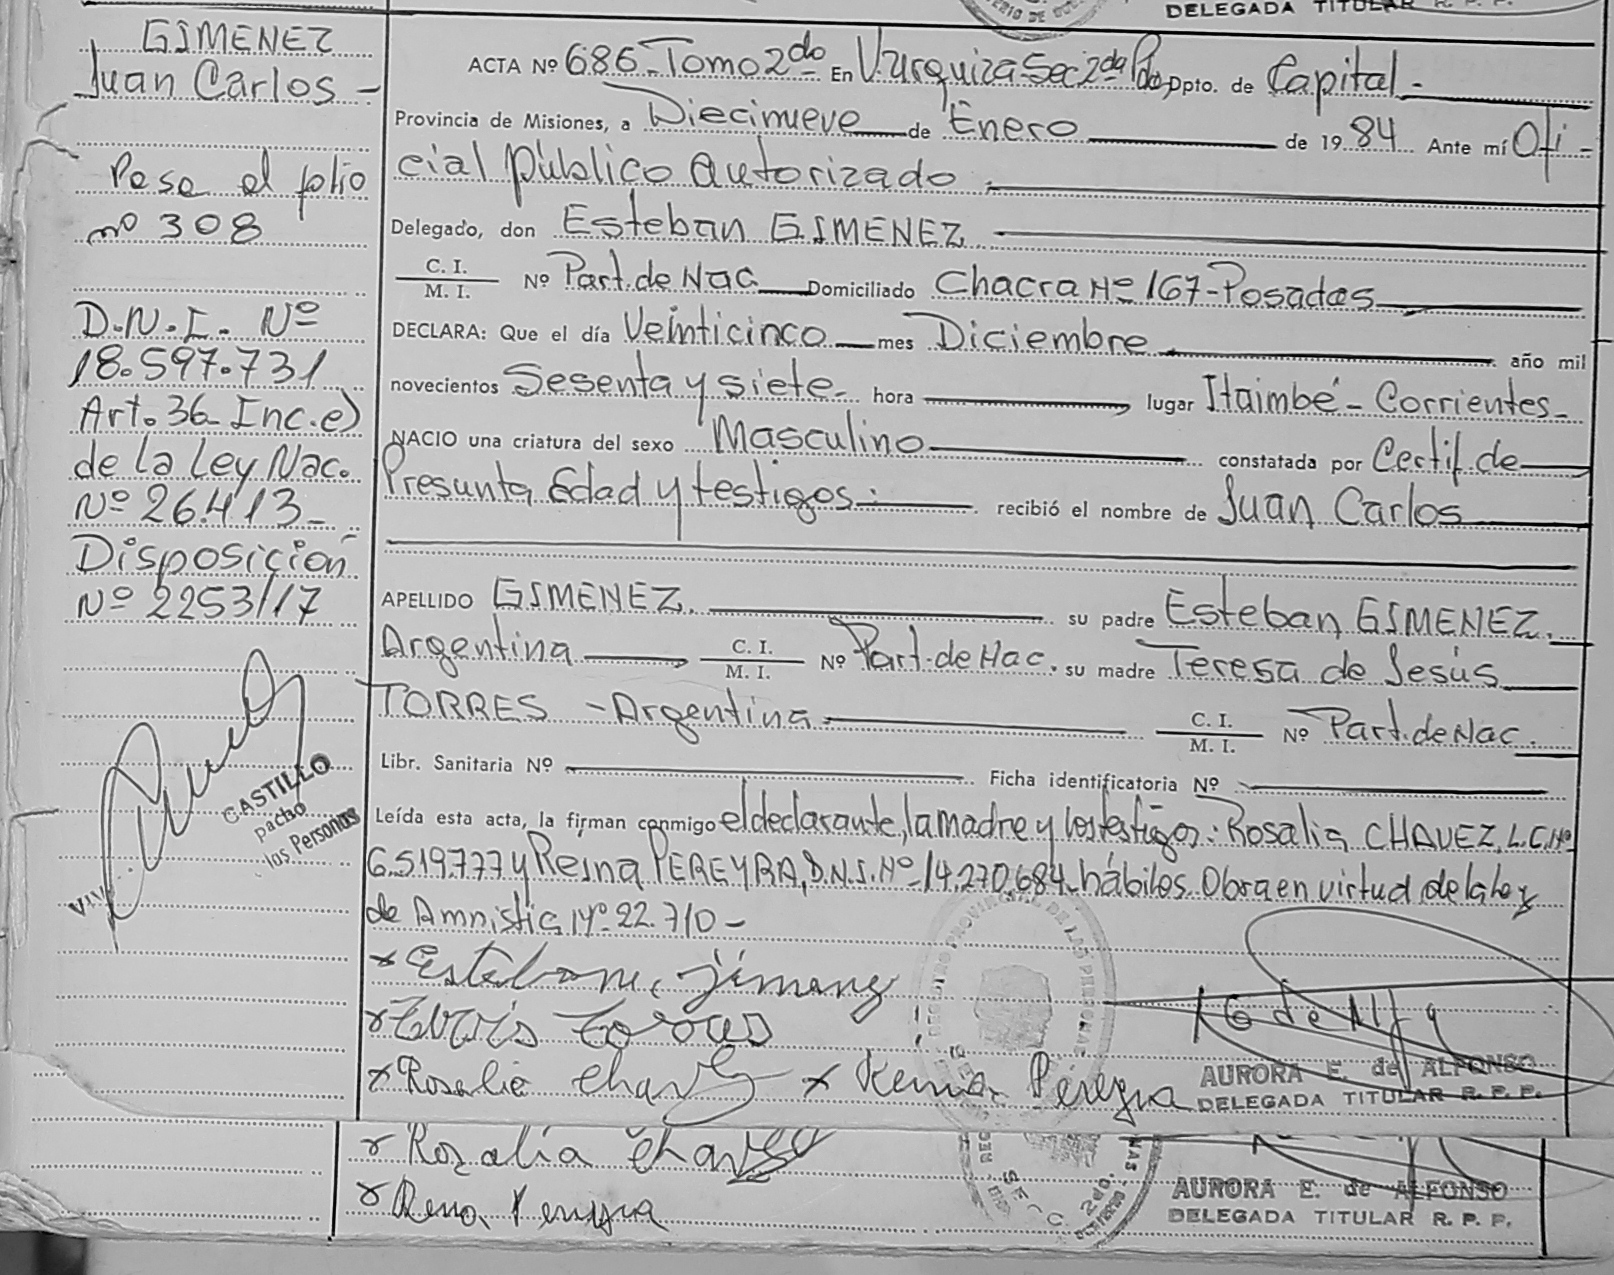 DELEGADA TITULAR R. P. P.
GIMENEZ
Juan Carlos -
Pasa al folio
nº 308
D.N.I. Nº
18.597.731
Art. 36 Inc. e)
de la Ley Nac.
Nº 26.413 -
Disposición
Nº 2253/17
CASTILLO
las Personas
ACTA Nº 686 - Tomo 2do En V. Urquiza Sec 2da Pdas, Dpto. de Capital -
Provincia de Misiones, a Diecinueve de Enero de 1984 Ante mí Ofi -
cial público autorizado
Delegado, don Esteban GIMENEZ
C. I. / M. I. Nº Part. de Nac Domiciliado Chacra Nº 167 - Posadas
DECLARA: Que el día Veinticinco mes Diciembre año mil
novecientos Sesenta y siete - hora lugar Itaimbé - Corrientes -
NACIO una criatura del sexo Masculino constatada por Certif. de
Presunta Edad y testigos recibió el nombre de Juan Carlos
APELLIDO GIMENEZ su padre Esteban GIMENEZ.
Argentina C. I. / M. I. Nº Part. de Nac. su madre Teresa de Jesús
TORRES - Argentina C. I. / M. I. Nº Part. de Nac.
Libr. Sanitaria Nº Ficha identificatoria Nº
Leída esta acta, la firman conmigo el declarante, la madre y los testigos: Rosalia CHAVEZ, L.C. Nº
6.519.777 y Reina PEREYRA, D.N.I. Nº 14.270.684 - hábiles. Obra en virtud de la ley
de Amnistia Nº 22.710 -
x Rosalia Chavez x Reina Pereyra
AURORA E. de ALFONSO
DELEGADA TITULAR R. P. P.
x Rosalía Chavez
AURORA E. de ALFONSO
DELEGADA TITULAR R. P. P.